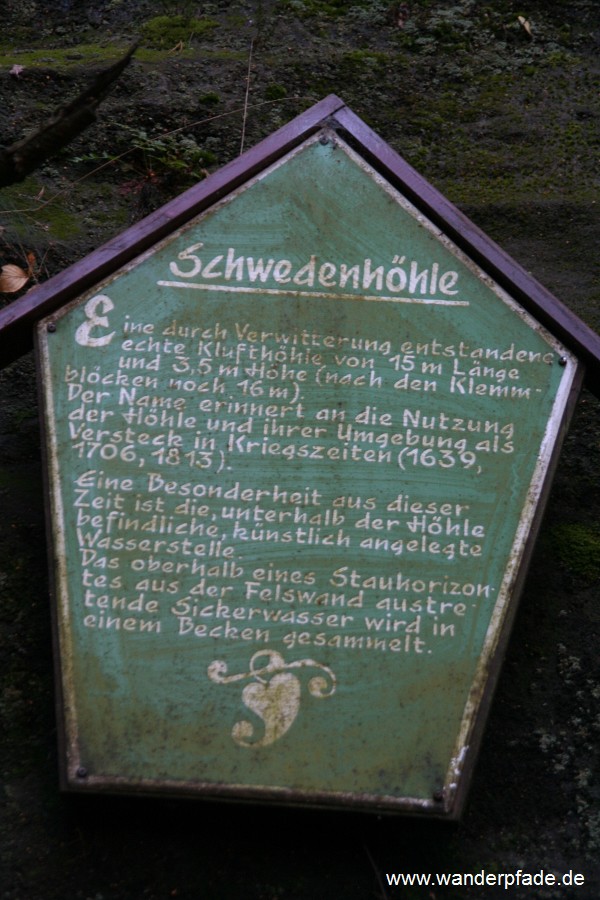 Schwedenhöhle
Eine durch Verwitterung entstandene
echte Klufthöhle von 15 m Länge
und 3,5 m Höhe (nach den Klemm-
blöcken noch 16 m).
Der Name erinnert an die Nutzung
der Höhle und ihrer Umgebung als
Versteck in Kriegszeiten (1639,
1706, 1813).
Eine Besonderheit aus dieser
Zeit ist die, unterhalb der Höhle
befindliche, künstlich angelegte
Wasserstelle.
Das oberhalb eines Stauhorizon-
tes aus der Felswand austre-
tende Sickerwasser wird in
einem Becken gesammelt.
www.wanderpfade.de